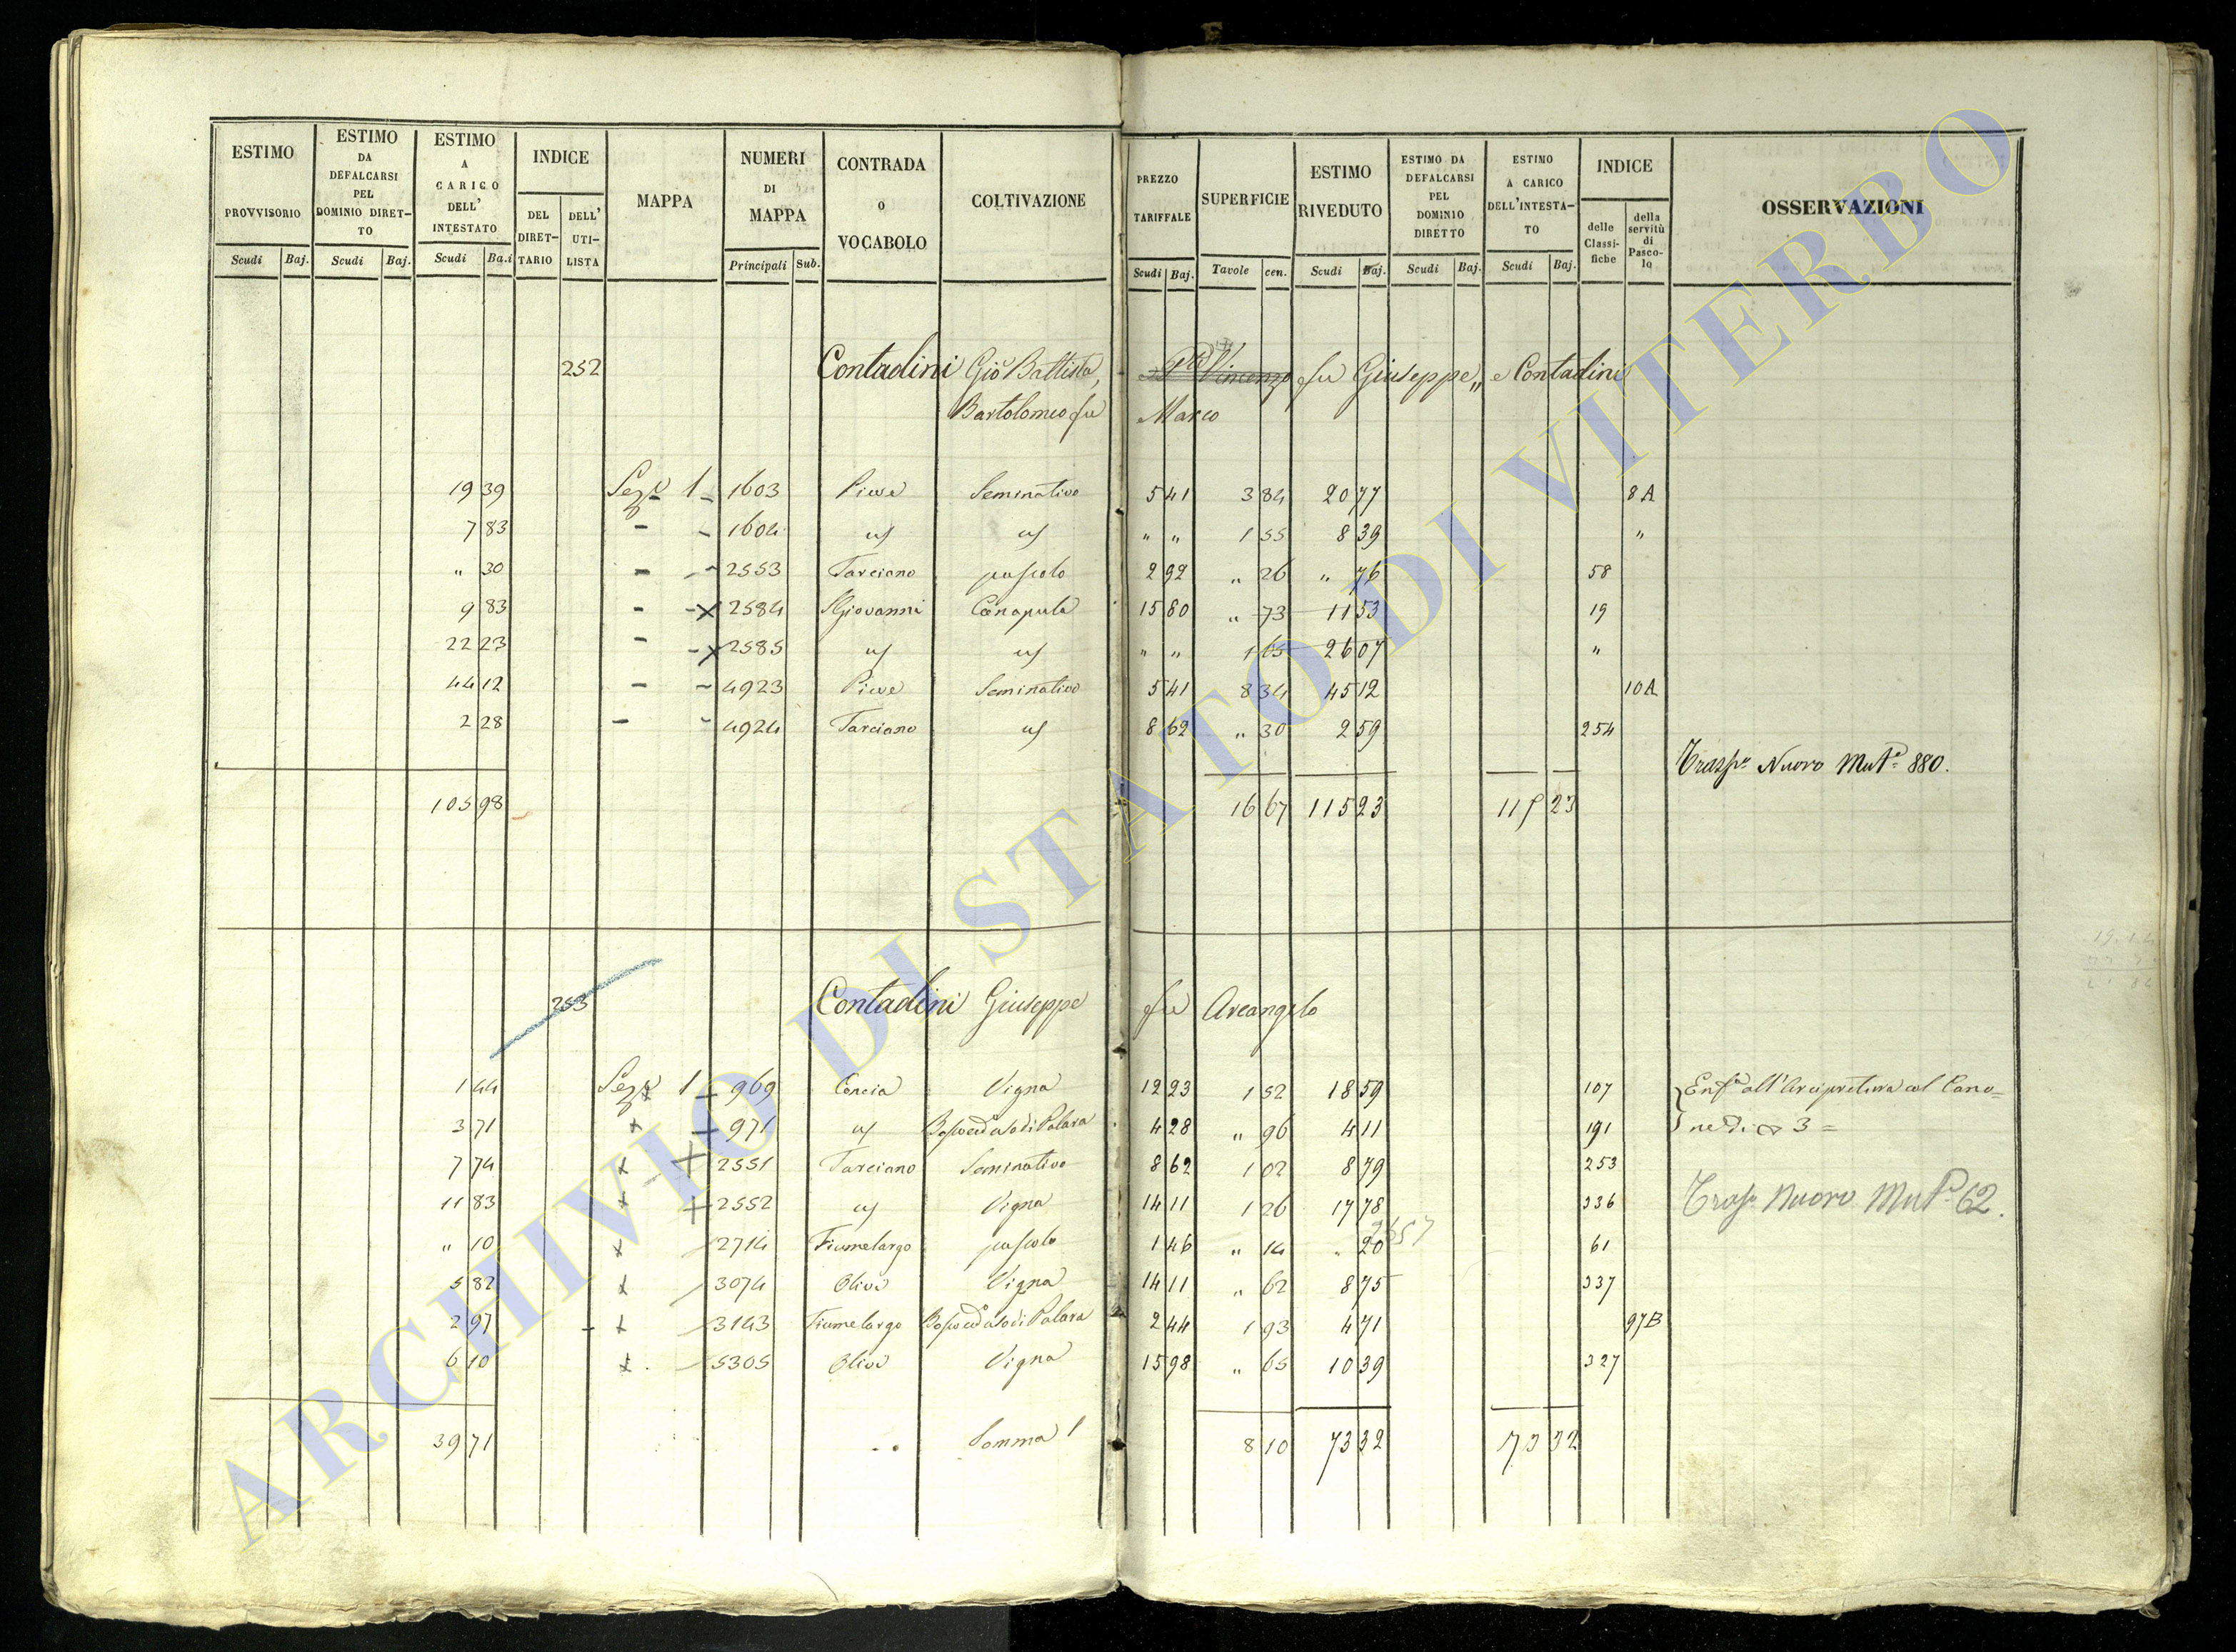 ESTIMO PROVVISORIO Scudi Baj.
ESTIMO DA DEFALCARSI PEL DOMINIO DIRET-TO Scudi Baj.
ESTIMO A CARICO DELL' INTESTATO Scudi Ba.i
INDICE DEL DIRET-TARIO DELL' UTI-LISTA
MAPPA
NUMERI DI MAPPA Principali Sub.
CONTRADA O VOCABOLO
COLTIVAZIONE
PREZZO TARIFFALE Scudi Baj.
SUPERFICIE Tavole cen.
ESTIMO RIVEDUTO Scudi Baj.
ESTIMO DA DEFALCARSI PEL DOMINIO DIRETTO Scudi Baj.
ESTIMO A CARICO DELL'INTESTA-TO Scudi Baj.
INDICE delle Classi-fiche della servitù di Pasco-lo
OSSERVAZIONI
252 Contadini Gio Battista, Vincenzo fu Giuseppe „ e Contadini
Bartolomeo fu Marco
19 39 Sez. 1 1603 Pieve Seminativo 5 41 3 84 20 77 8 A
7 83 - 1604 id id " " 1 55 8 39 "
" 30 - 2553 Tarciano pascolo 2 92 " 26 " 76 58
9 83 - x 2584 S Giovanni Canapula 15 80 " 73 11 53 19
22 23 - x 2585 id id " " 1 65 26 07 "
44 12 - 4923 Pieve Seminativo 5 41 8 34 45 12 10 A
2 28 - 4924 Tarciano id 8 62 " 30 2 59 254
Trasp. Nuovo Mut. 880.
105 98 16 67 115 23 115 23
253 Contadini Giuseppe fu Arcangelo
1 44 Sez. 1 969 Concia Vigna 12 23 1 52 18 59 107 Enf. all'Arcipretura col Cano=
3 71 x 971 id Bosco ed uso di Palara 4 28 " 96 4 11 191 ne di 3 =
7 74 x x 2551 Tarciano Seminativo 8 62 1 02 8 79 253
11 83 x x 2552 id Vigna 14 11 1 26 17 78 336 Trasp. Nuovo Mut. 62.
" 10 x 2714 Fiumelargo pascolo 1 46 " 14 " 20 61
5 82 x 3074 Olivi Vigna 14 11 " 62 8 75 337
2 97 x 3143 Fiumelargo Bosco ed uso di Palara 2 44 1 93 4 71 97 B
6 10 x 5305 Olivi Vigna 15 98 " 65 10 39 327
39 71 Somma 8 10 73 32 73 32
ARCHIVIO DI STATO DI VITERBO